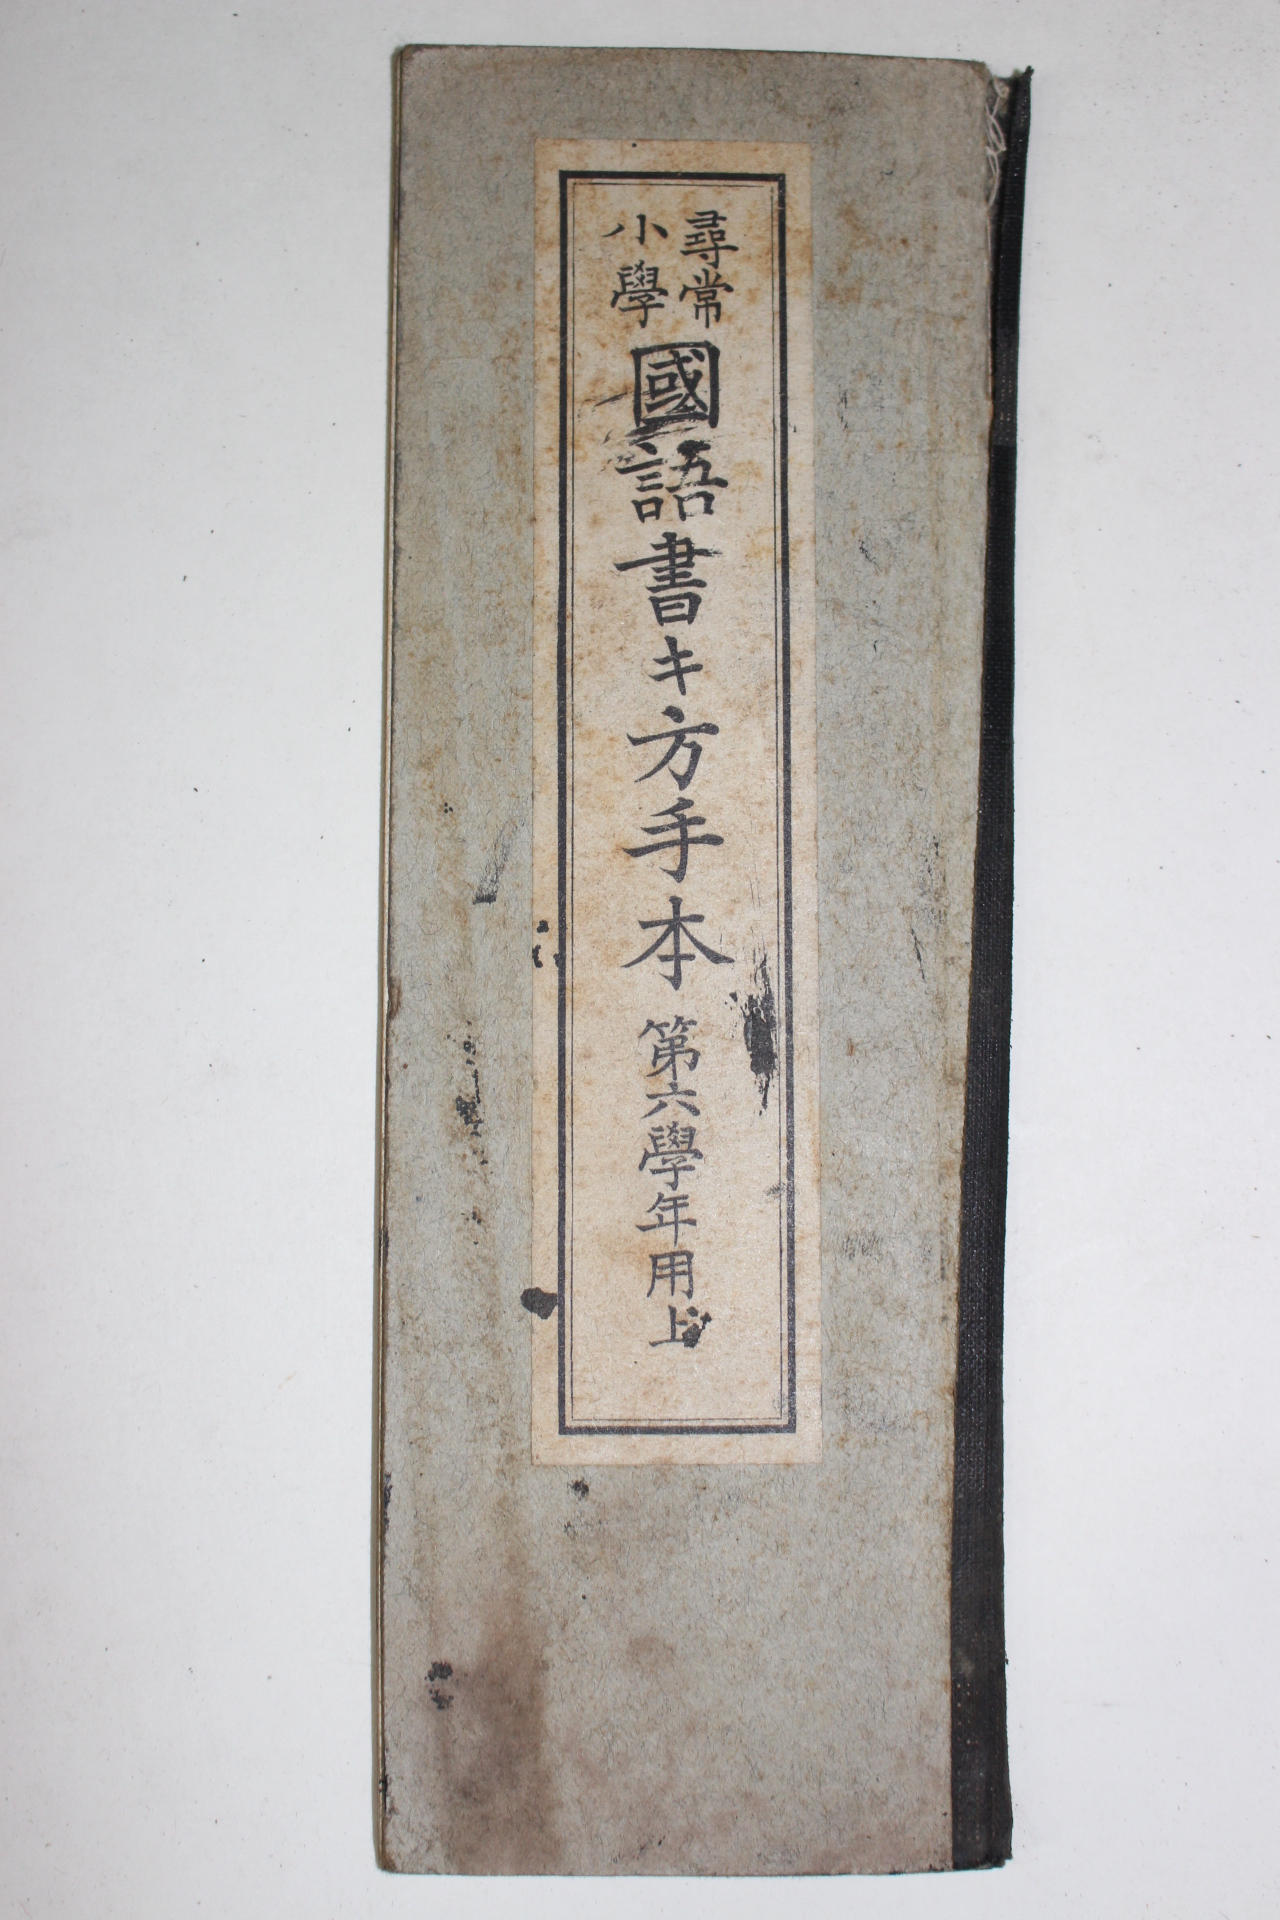 尋常
小學
國語書キ方手本 第六學年用上